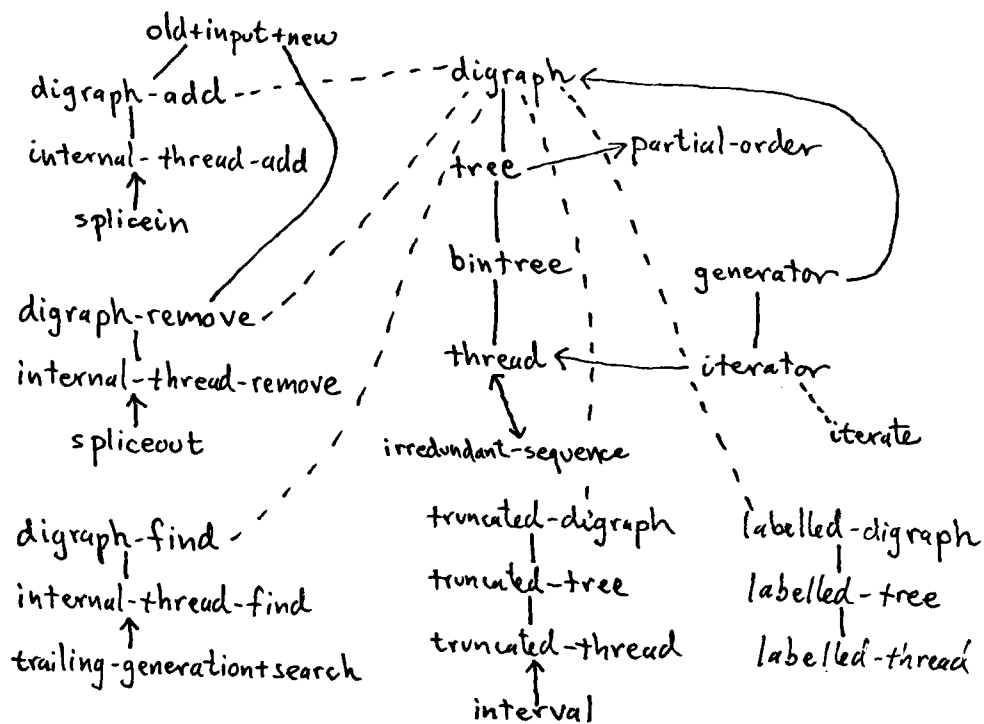 old+input+new
digraph-add
internal-thread-add
splicein
digraph-remove
internal-thread-remove
spliceout
digraph-find
internal-thread-find
trailing-generation+search
digraph
tree
partial-order
bintree
thread
irredundant-sequence
generator
iterator
iterate
truncated-digraph
truncated-tree
truncated-thread
interval
labelled-digraph
labelled-tree
labelled-thread